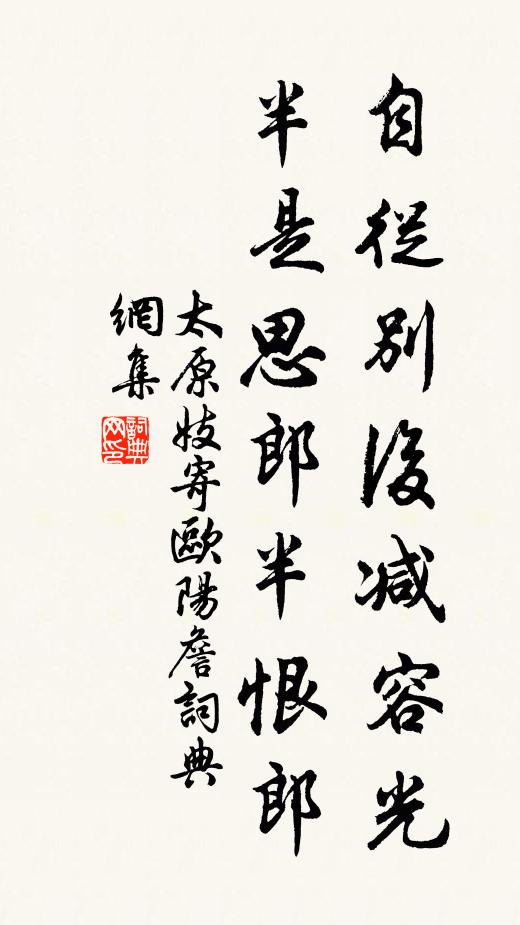 自從別後減容光
半是思郎半恨郎
太原妓寄歐陽詹詞典
網集
詞典
网印